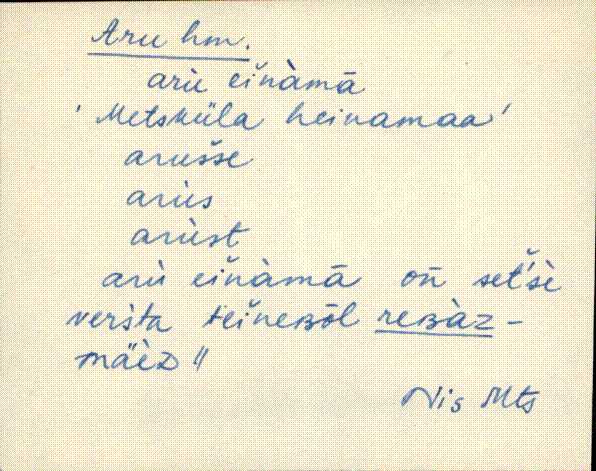 Aru hm.
arù eĭnàmā
'Metsküla heinamaa'
arušse
arùs
arùst
arù eĭnàmā oň set'šè
veršta teĭneʙōl reʙàz-
mäèᴅ ||
Nis Mts